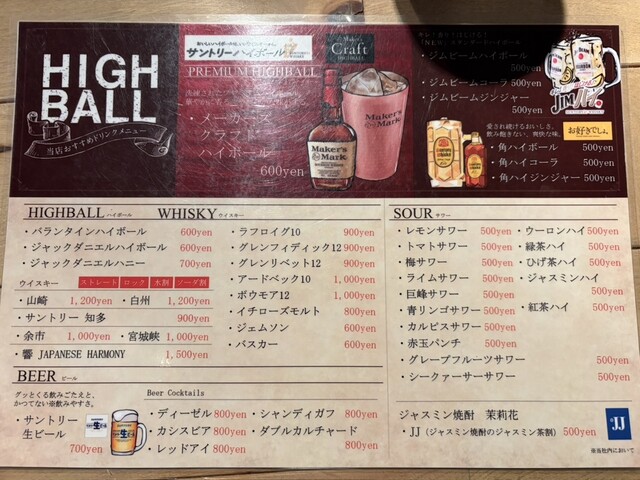 HIGH
BALL
当店おすすめドリンクメニュー
サントリーハイボール
Maker's
Craft
HIGHBALL
PREMIUM HIGHBALL
・メーカーズ
クラフト
ハイボール
600yen
Maker's
Mark
Maker's
Mark
・ジムビームハイボール
500yen
・ジムビームコーラ 500yen
・ジムビームジンジャー
500yen
愛され続けるおいしさ。
飲み飽きない、爽快な味。
お好きでしょ。
・角ハイボール 500yen
・角ハイコーラ 500yen
・角ハイジンジャー 500yen
HIGHBALL ハイボール
・バランタインハイボール 600yen
・ジャックダニエルハイボール 600yen
・ジャックダニエルハニー 700yen
ウイスキー ストレート ロック 水割 ソーダ割
・山崎 1,200yen ・白州 1,200yen
・サントリー 知多 900yen
・余市 1,000yen ・宮城峡 1,000yen
・響 JAPANESE HARMONY 1,500yen
WHISKY ウイスキー
・ラフロイグ10 900yen
・グレンフィディック12 900yen
・グレンリベット12 900yen
・アードベック10 1,000yen
・ボウモア12 1,000yen
・イチローズモルト 800yen
・ジェムソン 600yen
・バスカー 600yen
SOUR サワー
・レモンサワー 500yen
・トマトサワー 500yen
・梅サワー 500yen
・ライムサワー 500yen
・巨峰サワー 500yen
・青リンゴサワー 500yen
・カルピスサワー 500yen
・赤玉パンチ 500yen
・グレープフルーツサワー 500yen
・シークァーサーサワー 500yen
・ウーロンハイ 500yen
・緑茶ハイ 500yen
・ひげ茶ハイ 500yen
・ジャスミンハイ
500yen
・紅茶ハイ 500yen
BEER ビール
グッとくる飲みごたえと、
かつてない※飲みやすさ。
・サントリー
生ビール
700yen
生
Beer Cocktails
・ディーゼル 800yen
・カシスビア 800yen
・レッドアイ 800yen
・シャンディガフ 800yen
・ダブルカルチャード
800yen
ジャスミン焼酎 茉莉花
・JJ（ジャスミン焼酎のジャスミン茶割） 500yen
JJ
※当社内において